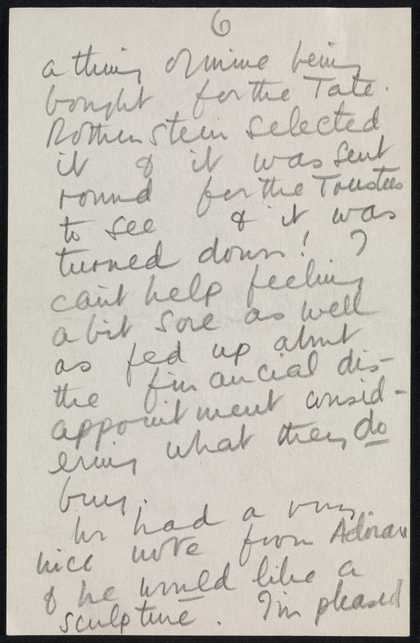 6
a thing of mine being
bought for the Tate.
Rothenstein selected
it & it was sent
round for the Trustees
to see & it was
turned down! I
can't help feeling
a bit sore as well
as fed up about
the financial dis-
appointment consid-
ering what they do
buy.
We had a very
nice note from Adrian
& he would like a
sculpture. I'm pleased